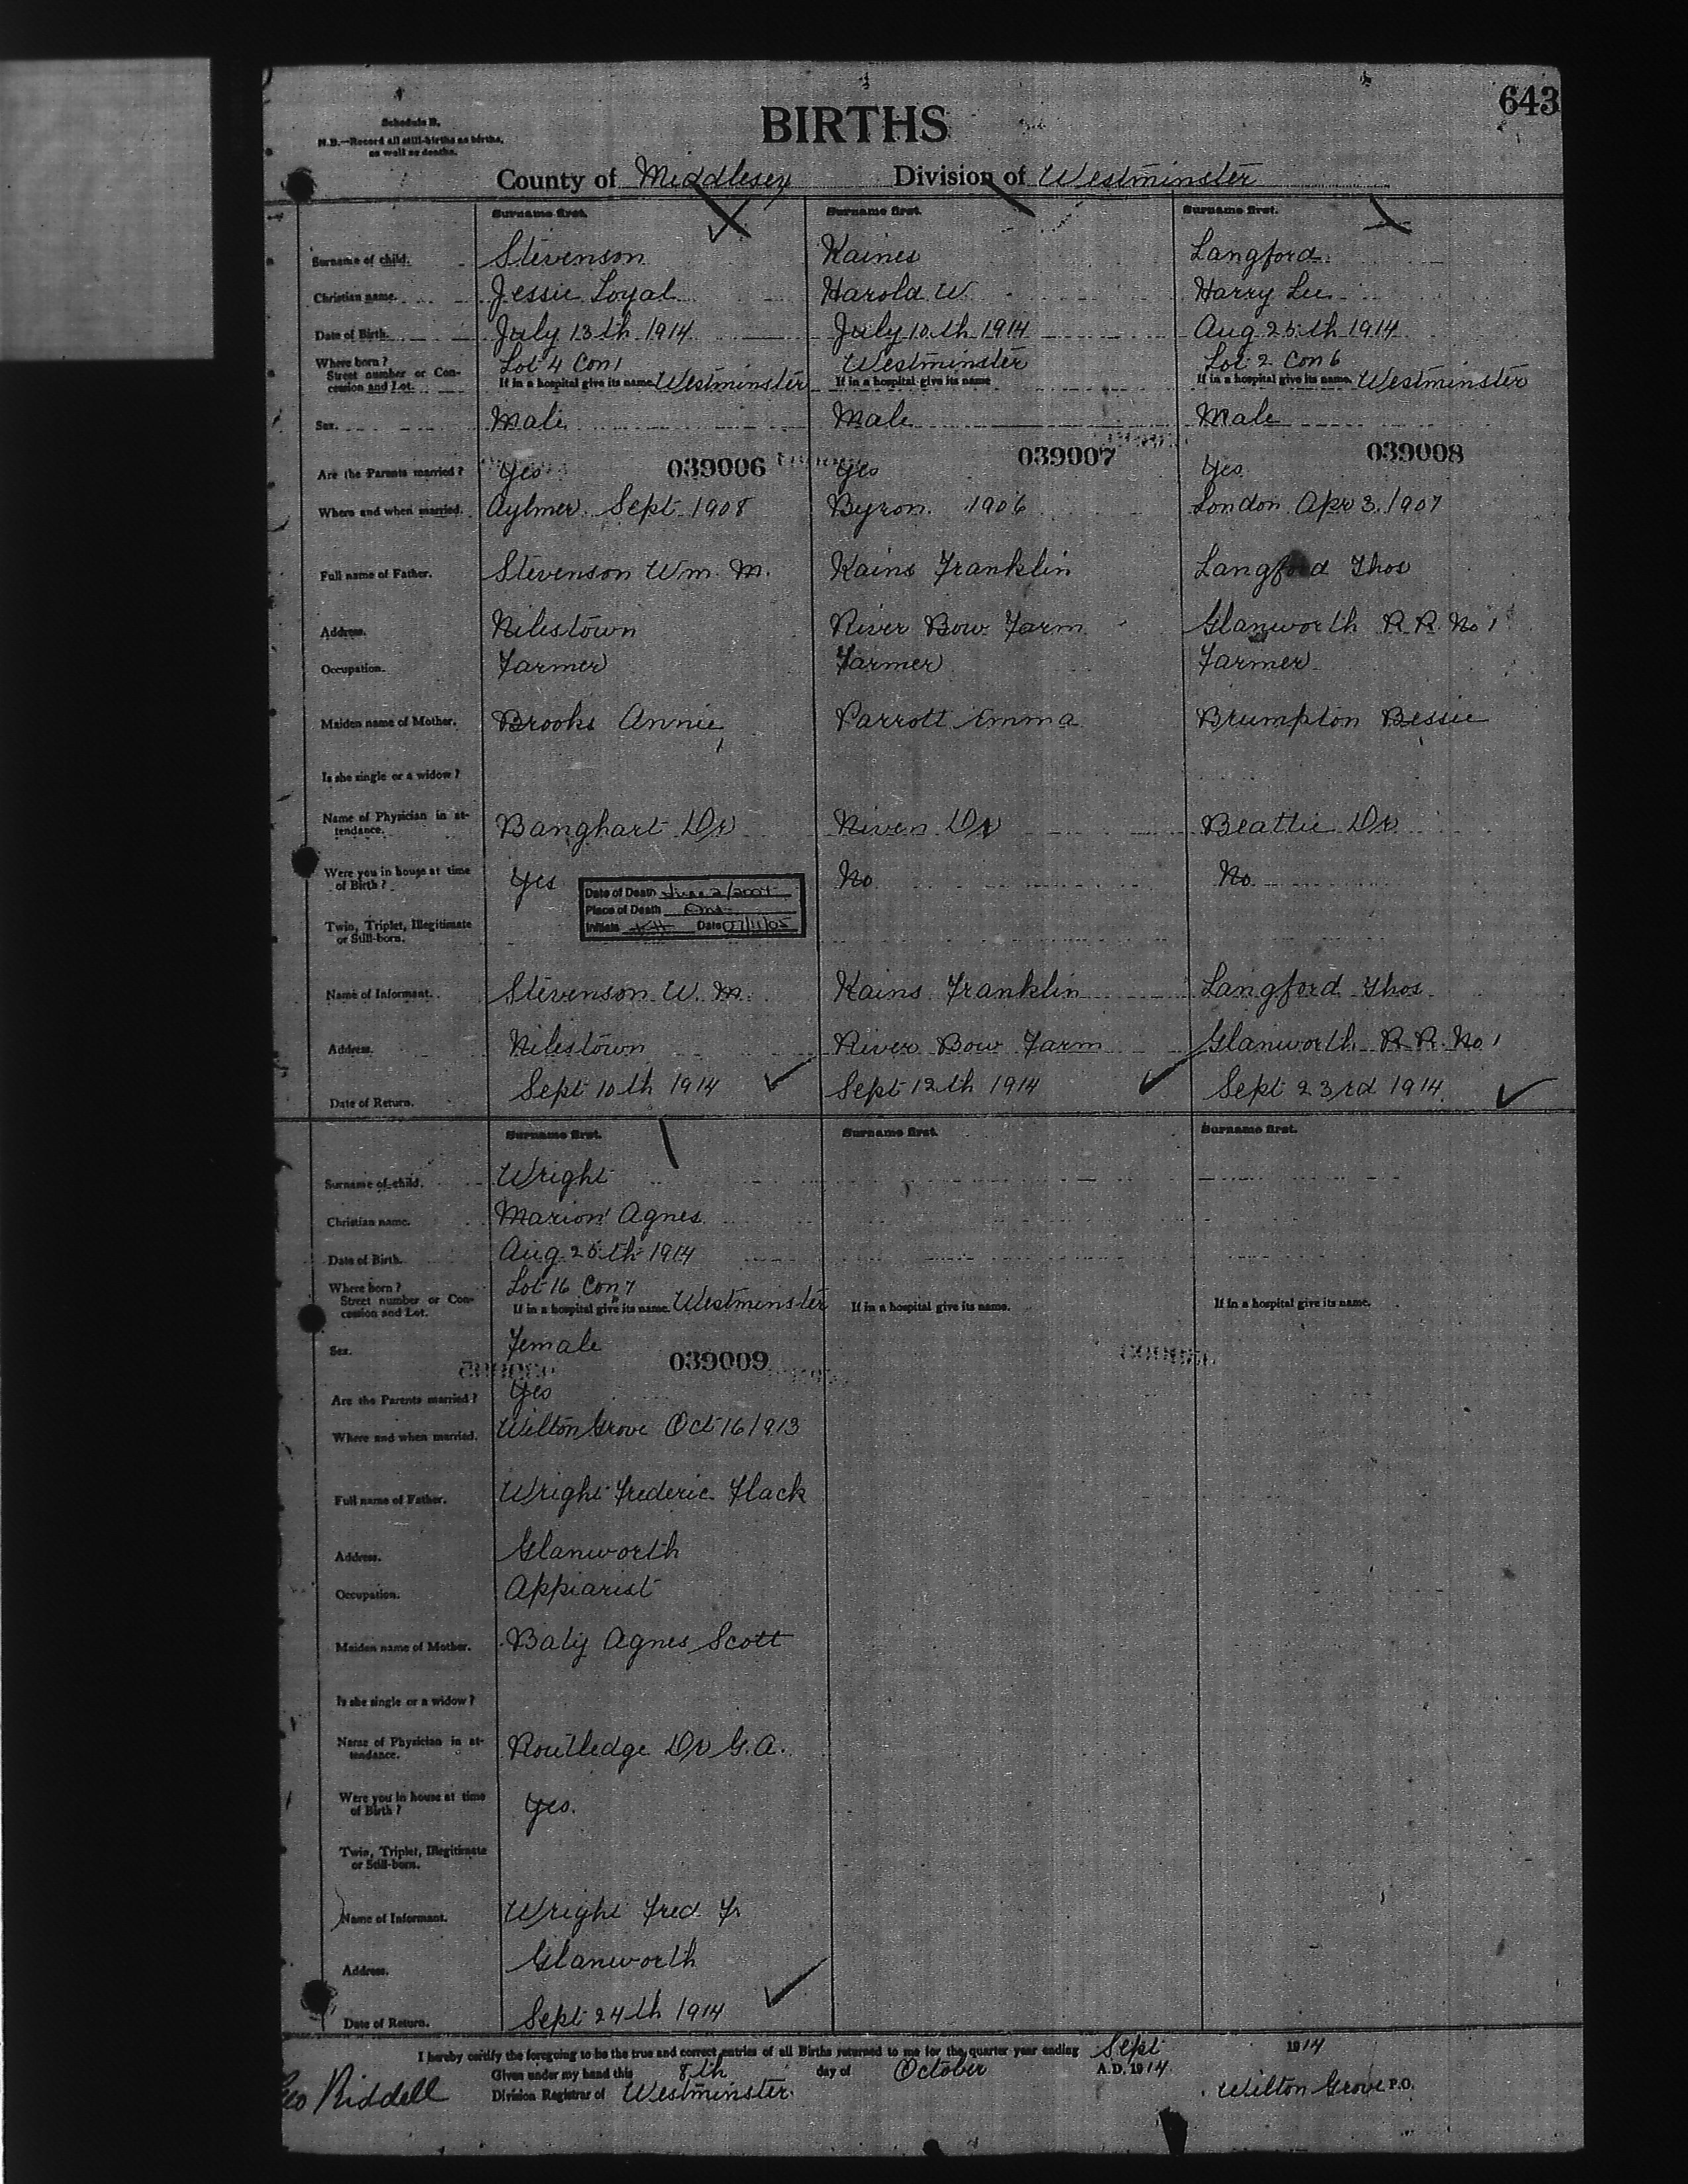 643
BIRTHS
Schedule B.
N.B.—Record all still-births as births,
as well as deaths.
County of Middlesex Division of Westminster
Surname first. Surname first. Surname first.
Surname of child. Stevenson Kaines Langford
Christian name. Jessie Loyal Harold W Harry Lee
Date of Birth. July 13th 1914 July 10th 1914 Aug 25th 1914
Where born? Lot 4 Con 1 Westminster Lot 2 Con 6
Street number or Con-
cession and Lot. If in a hospital give its name. Westminster If in a hospital give its name If in a hospital give its name. Westminster
Sex. Male Male Male
039006 039007 039008
Are the Parents married? Yes Yes Yes
Where and when married. Aylmer Sept 1908 Byron 1906 London Apr 3 1907
Full name of Father. Stevenson Wm. M. Kains Franklin Langford Thos
Address. Nilestown River Bow Farm Glanworth R.R. No 1
Occupation. Farmer Farmer Farmer
Maiden name of Mother. Brooks Annie Parrott Emma Brumpton Bessie
Is she single or a widow?
Name of Physician in at-
tendance. Banghart Dr Niven Dr Beattie Dr
Were you in house at time
of Birth? Yes No No
Date of Death
Place of Death Ont
Initials KH Date 07/11/05
Twin, Triplet, Illegitimate
or Still-born.
Name of Informant. Stevenson W. M. Kains Franklin Langford Thos
Address. Nilestown River Bow Farm Glanworth R.R. No 1
Date of Return. Sept 10th 1914 Sept 12th 1914 Sept 23rd 1914
Surname first. Surname first. Surname first.
Surname of child. Wright
Christian name. Marion Agnes
Date of Birth. Aug 25th 1914
Where born? Lot 16 Con 7
Street number or Con-
cession and Lot. If in a hospital give its name. Westminster If in a hospital give its name. If in a hospital give its name.
Sex. Female
039009
Are the Parents married? Yes
Where and when married. Wilton Grove Oct 16 1913
Full name of Father. Wright Frederic Flack
Address. Glanworth
Occupation. Appiarist
Maiden name of Mother. Baty Agnes Scott
Is she single or a widow?
Name of Physician in at-
tendance. Routledge Dr G.A.
Were you in house at time
of Birth? Yes.
Twin, Triplet, Illegitimate
or Still-born.
Name of Informant. Wright Fred Jr
Address. Glanworth
Date of Return. Sept 24th 1914
I hereby certify the foregoing to be the true and correct entries of all Births returned to me for the quarter year ending Sept 1914
Given under my hand this 8th day of October A.D. 1914
Geo Riddell Division Registrar of Westminster. Wilton Grove P.O.